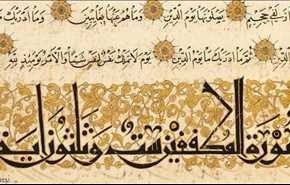 لفي جحيم يصلونها يوم الدين وما هم عنها بغايبين وما ادريك
ثم ما ادريك ما يوم الدين يوم لا تملك نفس لنفس شيئا والامر يومئذ لله
سورة المطففين ست وثلثون اية